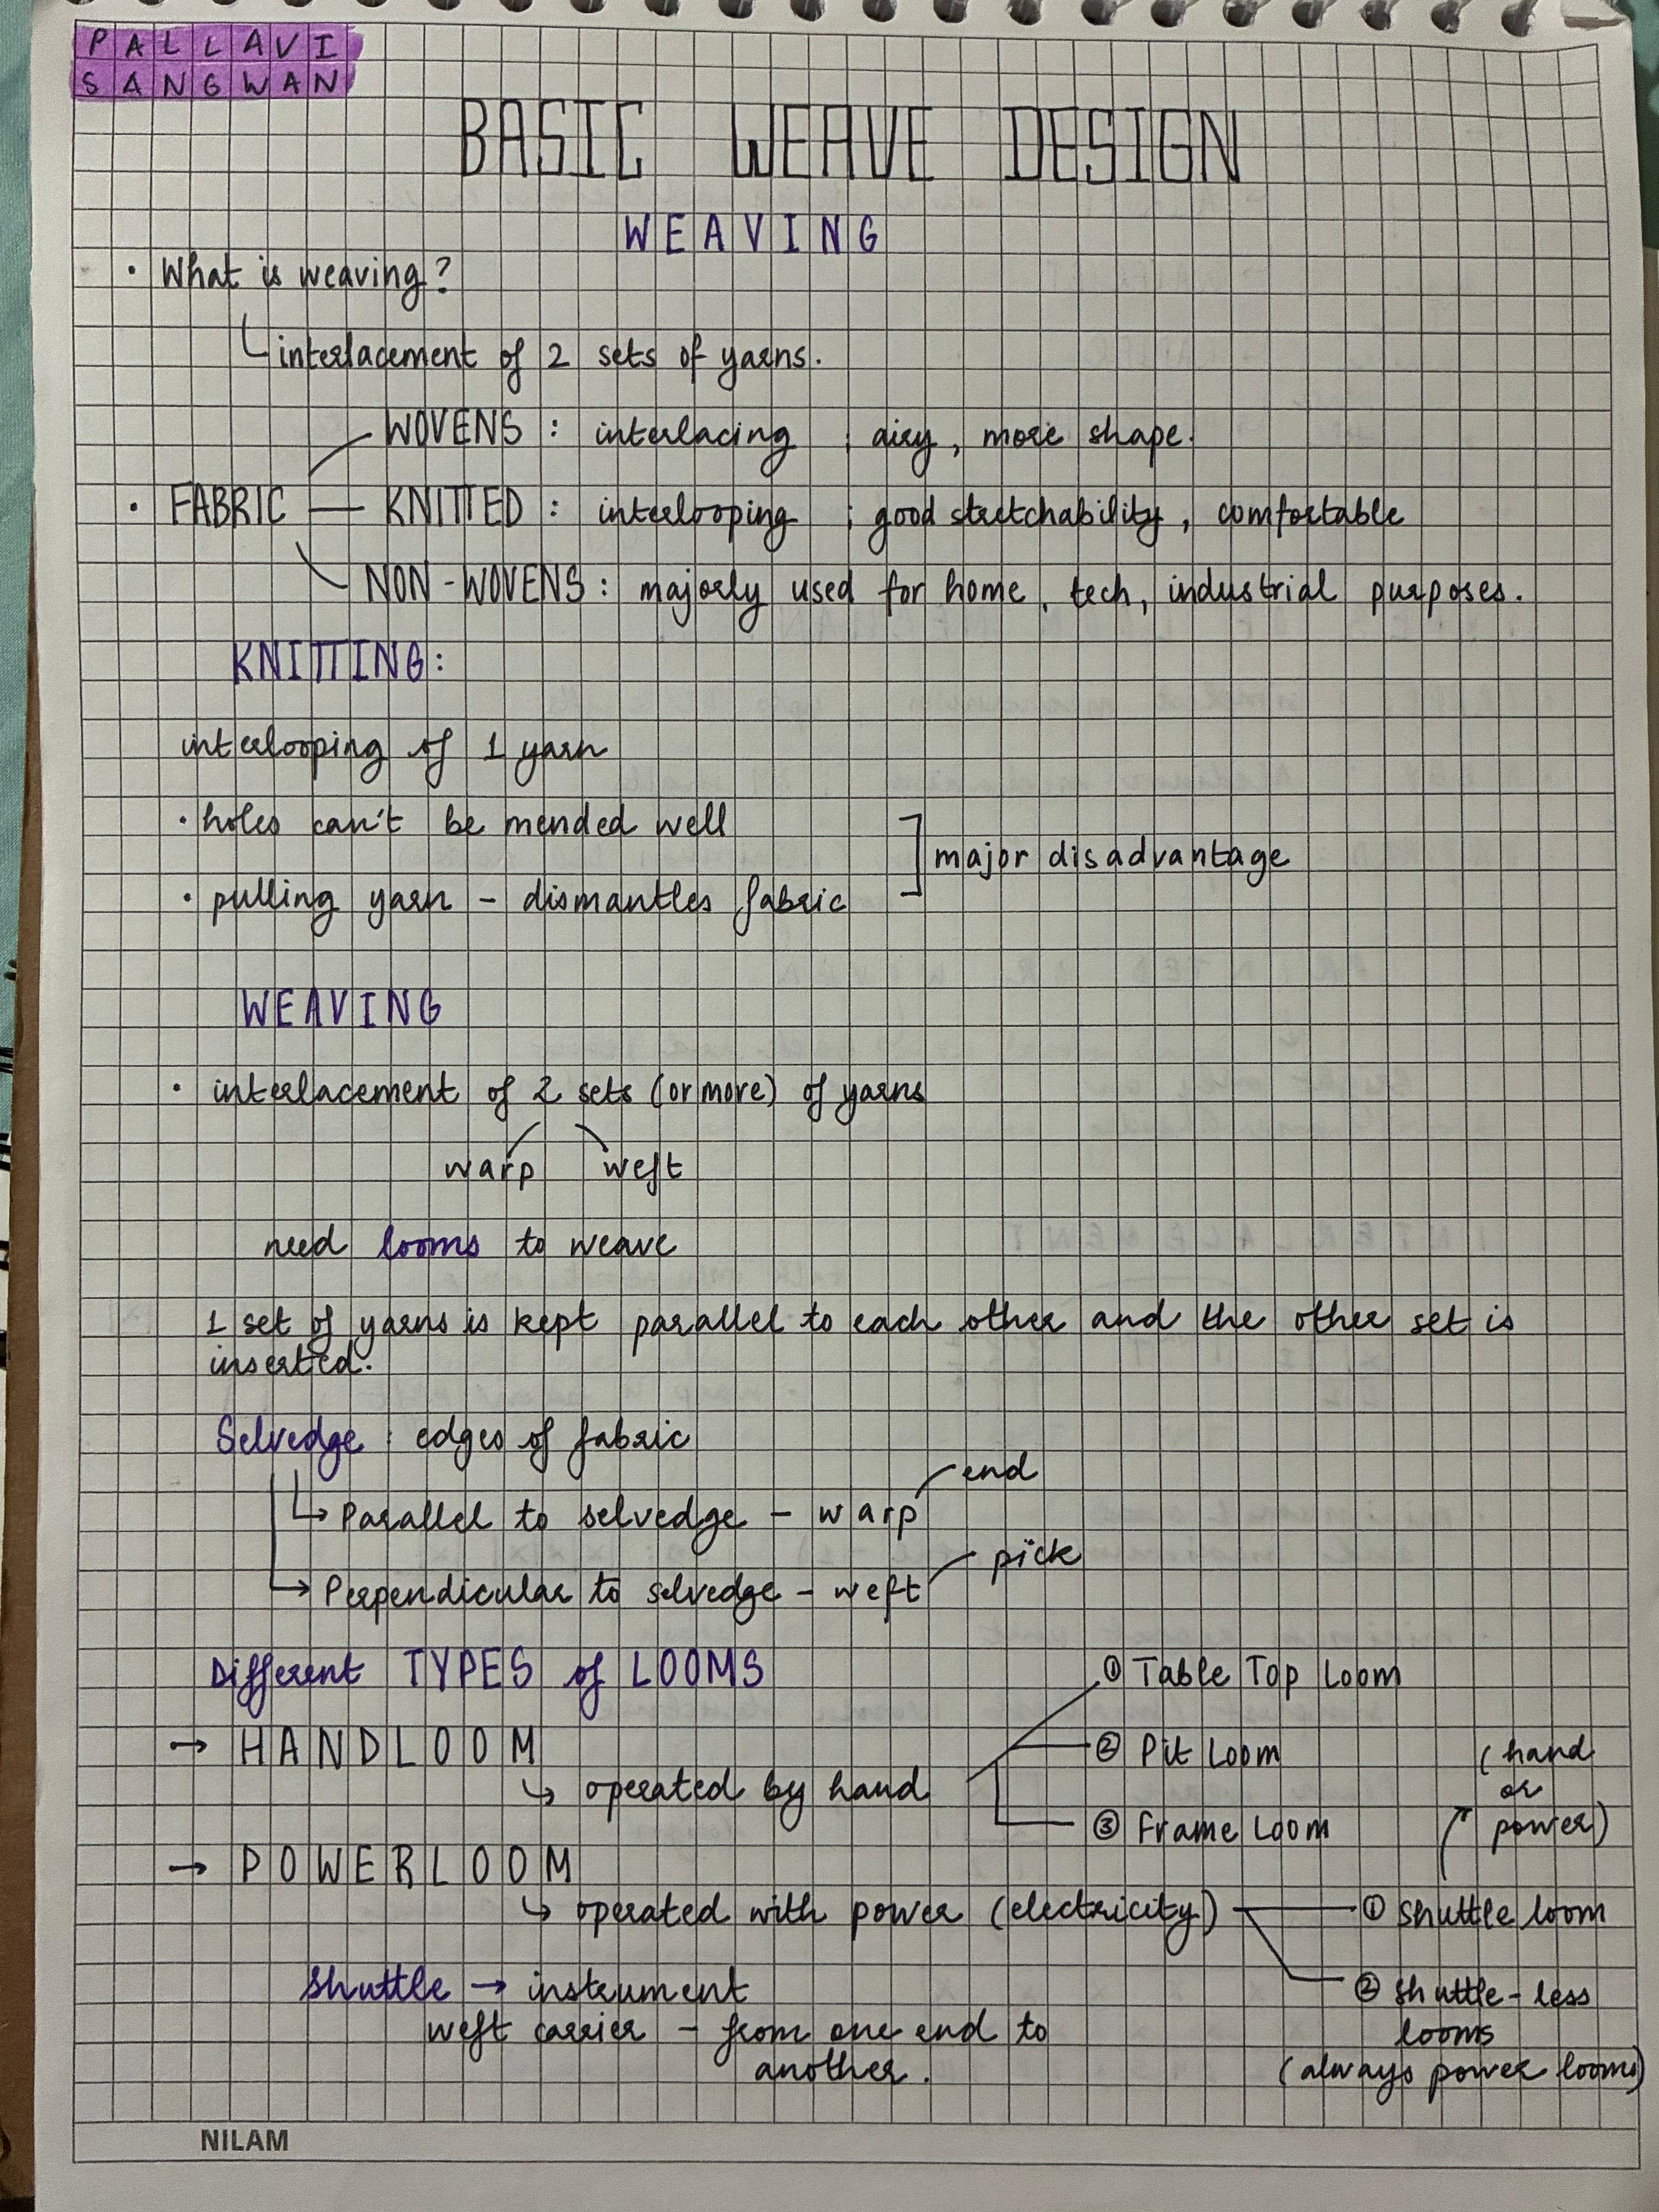 PALLAVI
SANGWAN
BASIC WEAVE DESIGN
WEAVING
• What is weaving?
interlacement of 2 sets of yarns.
WOVENS : interlacing ; airy, more shape.
• FABRIC — KNITTED : interlooping ; good stretchability, comfortable
NON-WOVENS : majorly used for home, tech, industrial purposes.
KNITTING:
interlooping of 1 yarn
• holes can't be mended well
major disadvantage
• pulling yarn - dismantles fabric
WEAVING
• interlacement of 2 sets (or more) of yarns
warp weft
need looms to weave
1 set of yarns is kept parallel to each other and the other set is
inserted.
Selvedge : edges of fabric
end
↳ Parallel to selvedge - warp
pick
↳ Perpendicular to selvedge - weft
Different TYPES of LOOMS
① Table Top Loom
→ HANDLOOM
② Pit Loom
(hand
or
power)
↳ operated by hand
③ Frame Loom
→ POWERLOOM
↳ operated with power (electricity)
① Shuttle loom
Shuttle → instrument
② Shuttle-less
looms
(always power looms)
weft carrier - from one end to
another.
NILAM